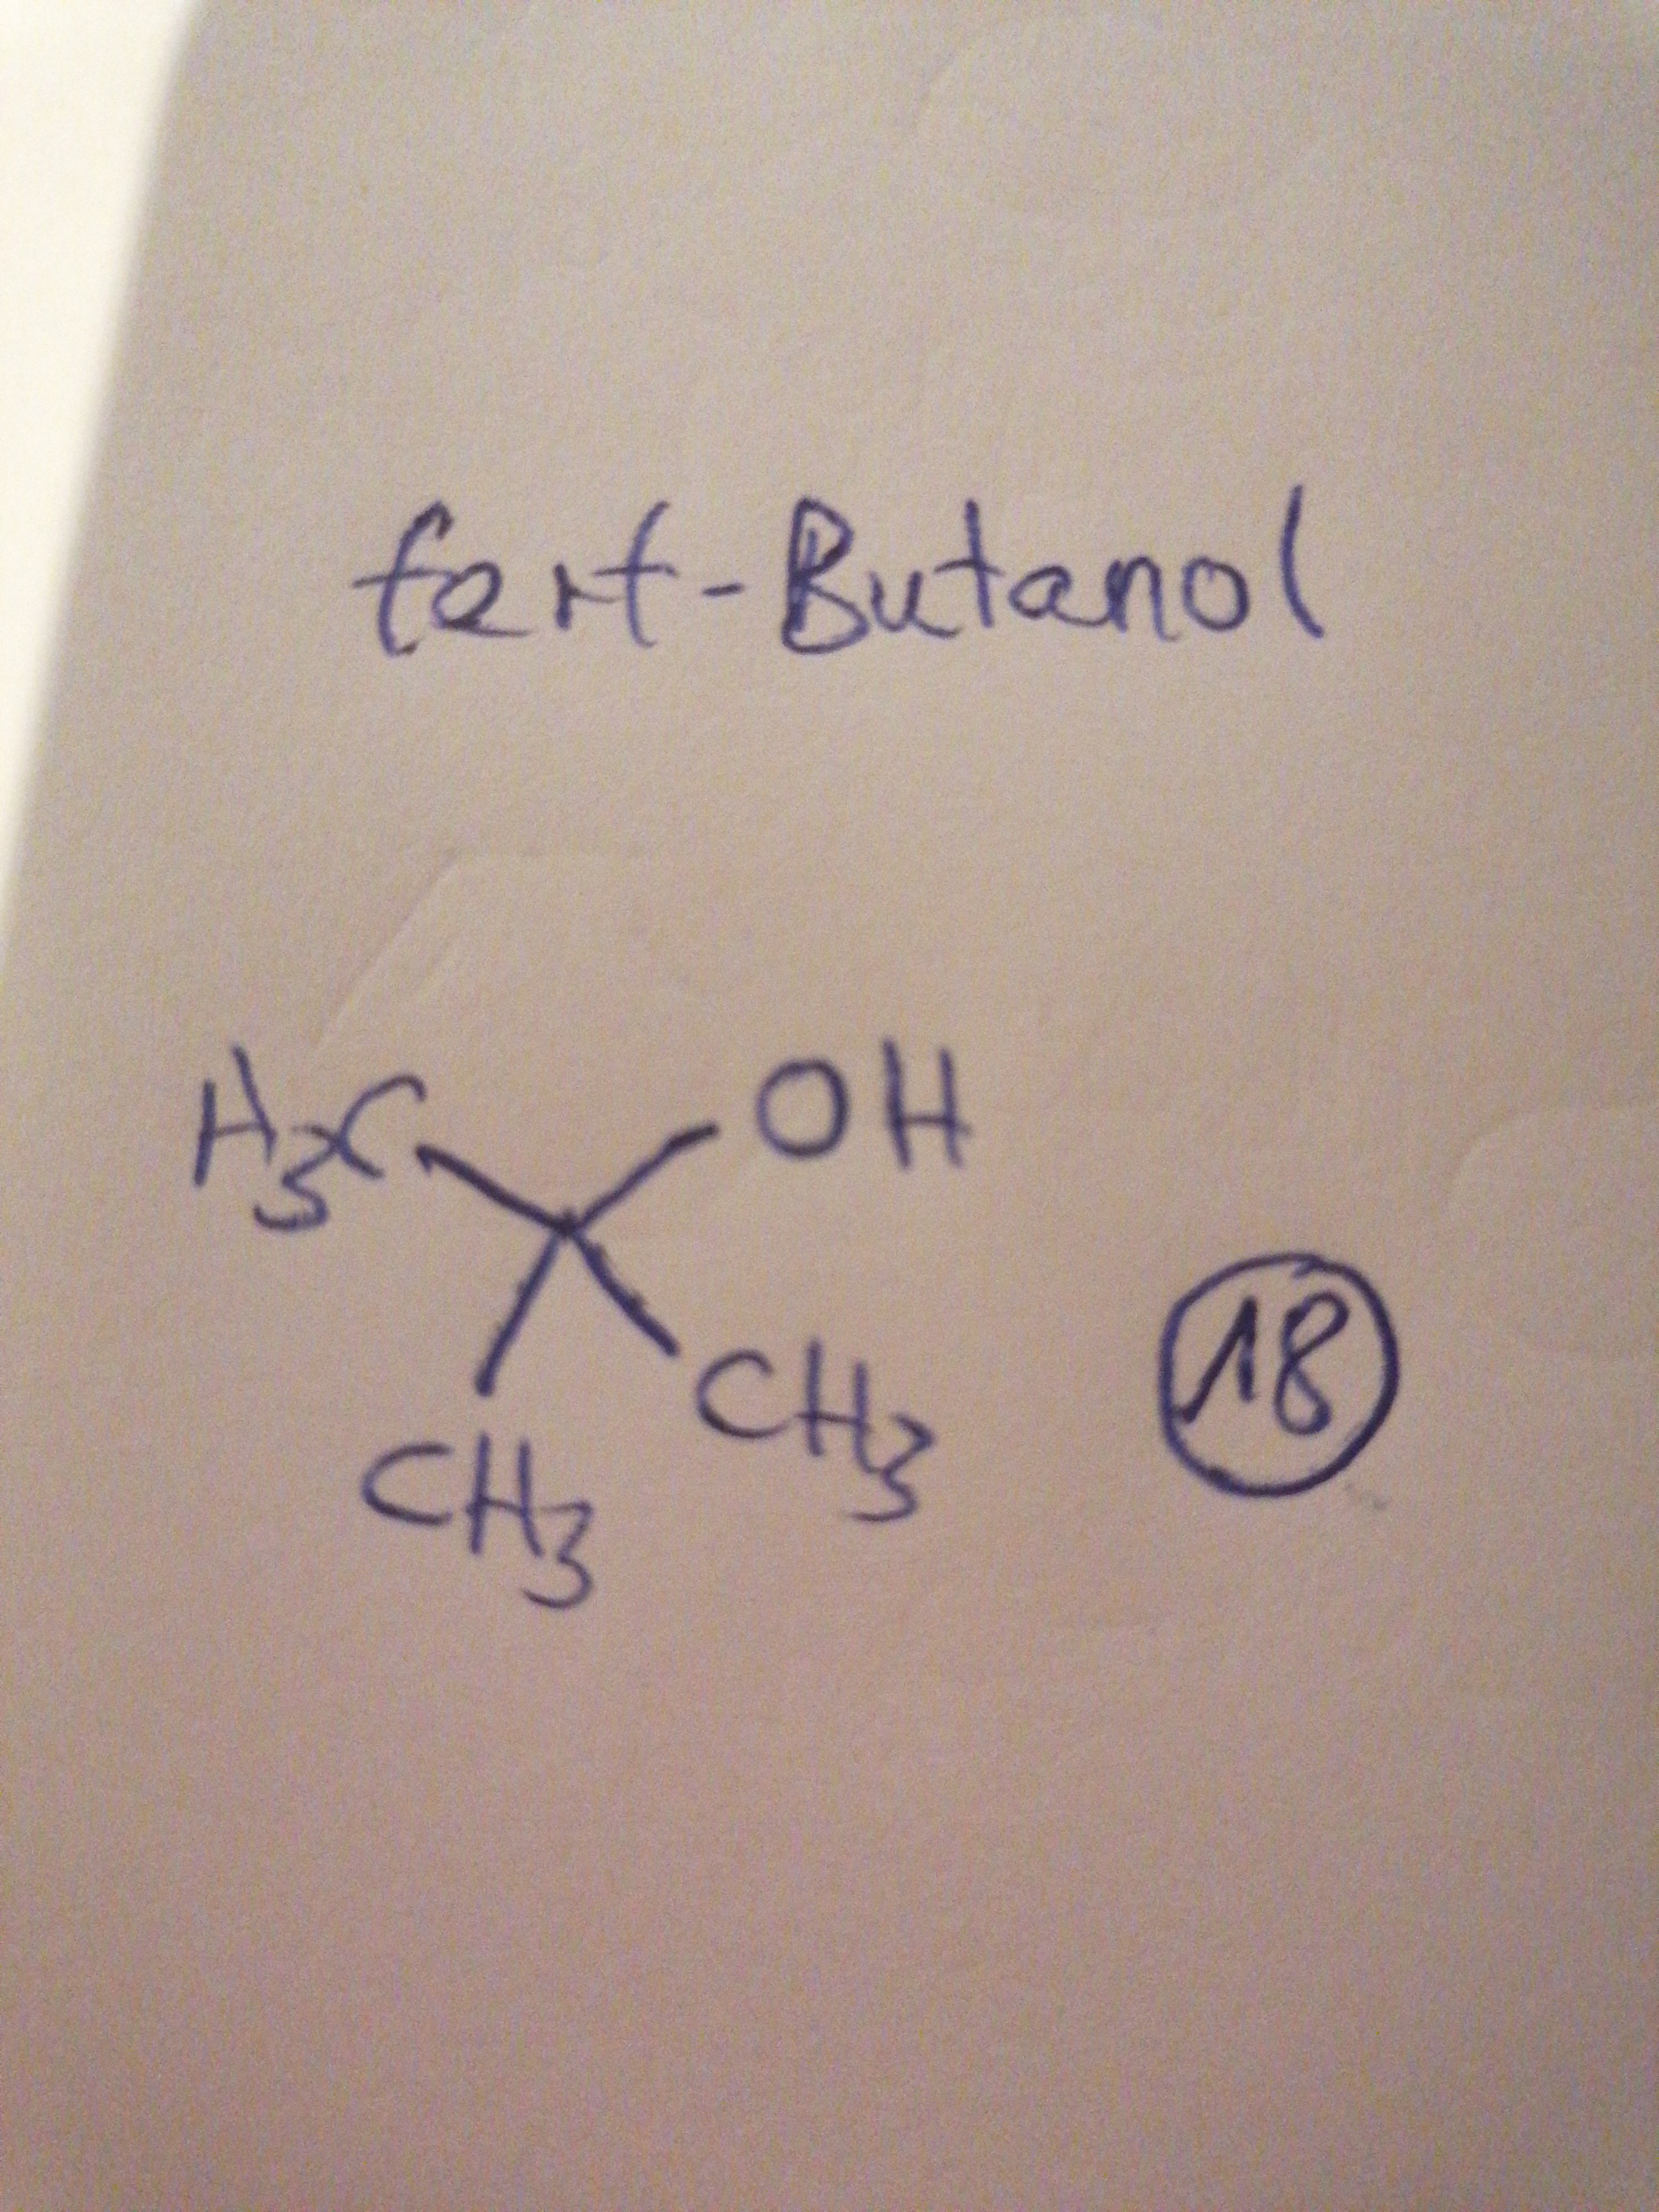 tert-Butanol
H3C OH
CH3
CH3
18